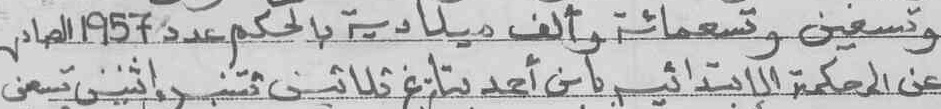 وتسعين وتسعمائة وألف ميلادية بالحكم عدد 1957 الصادر
عن المحكمة الابتدائية بابن أحمد بتاريخ ثلاثين شتنبر اثنين تسعين